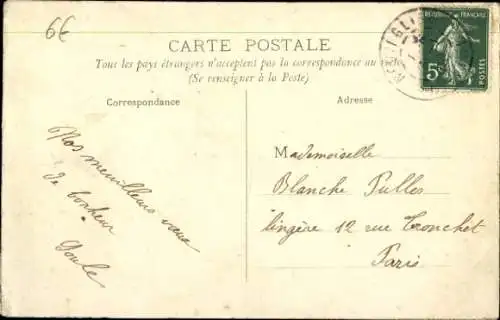 6€
CARTE POSTALE
Tous les pays étrangers n'acceptent pas la correspondance au
(Se renseigner à la Poste)
REPUBLIQUE FRANÇAISE
5c
POSTES
Correspondance
Adresse
Nos meuilleurs vœux
de bonheur
Mademoiselle
Blanche Pulles
lingère 12 rue Tronchet
Paris